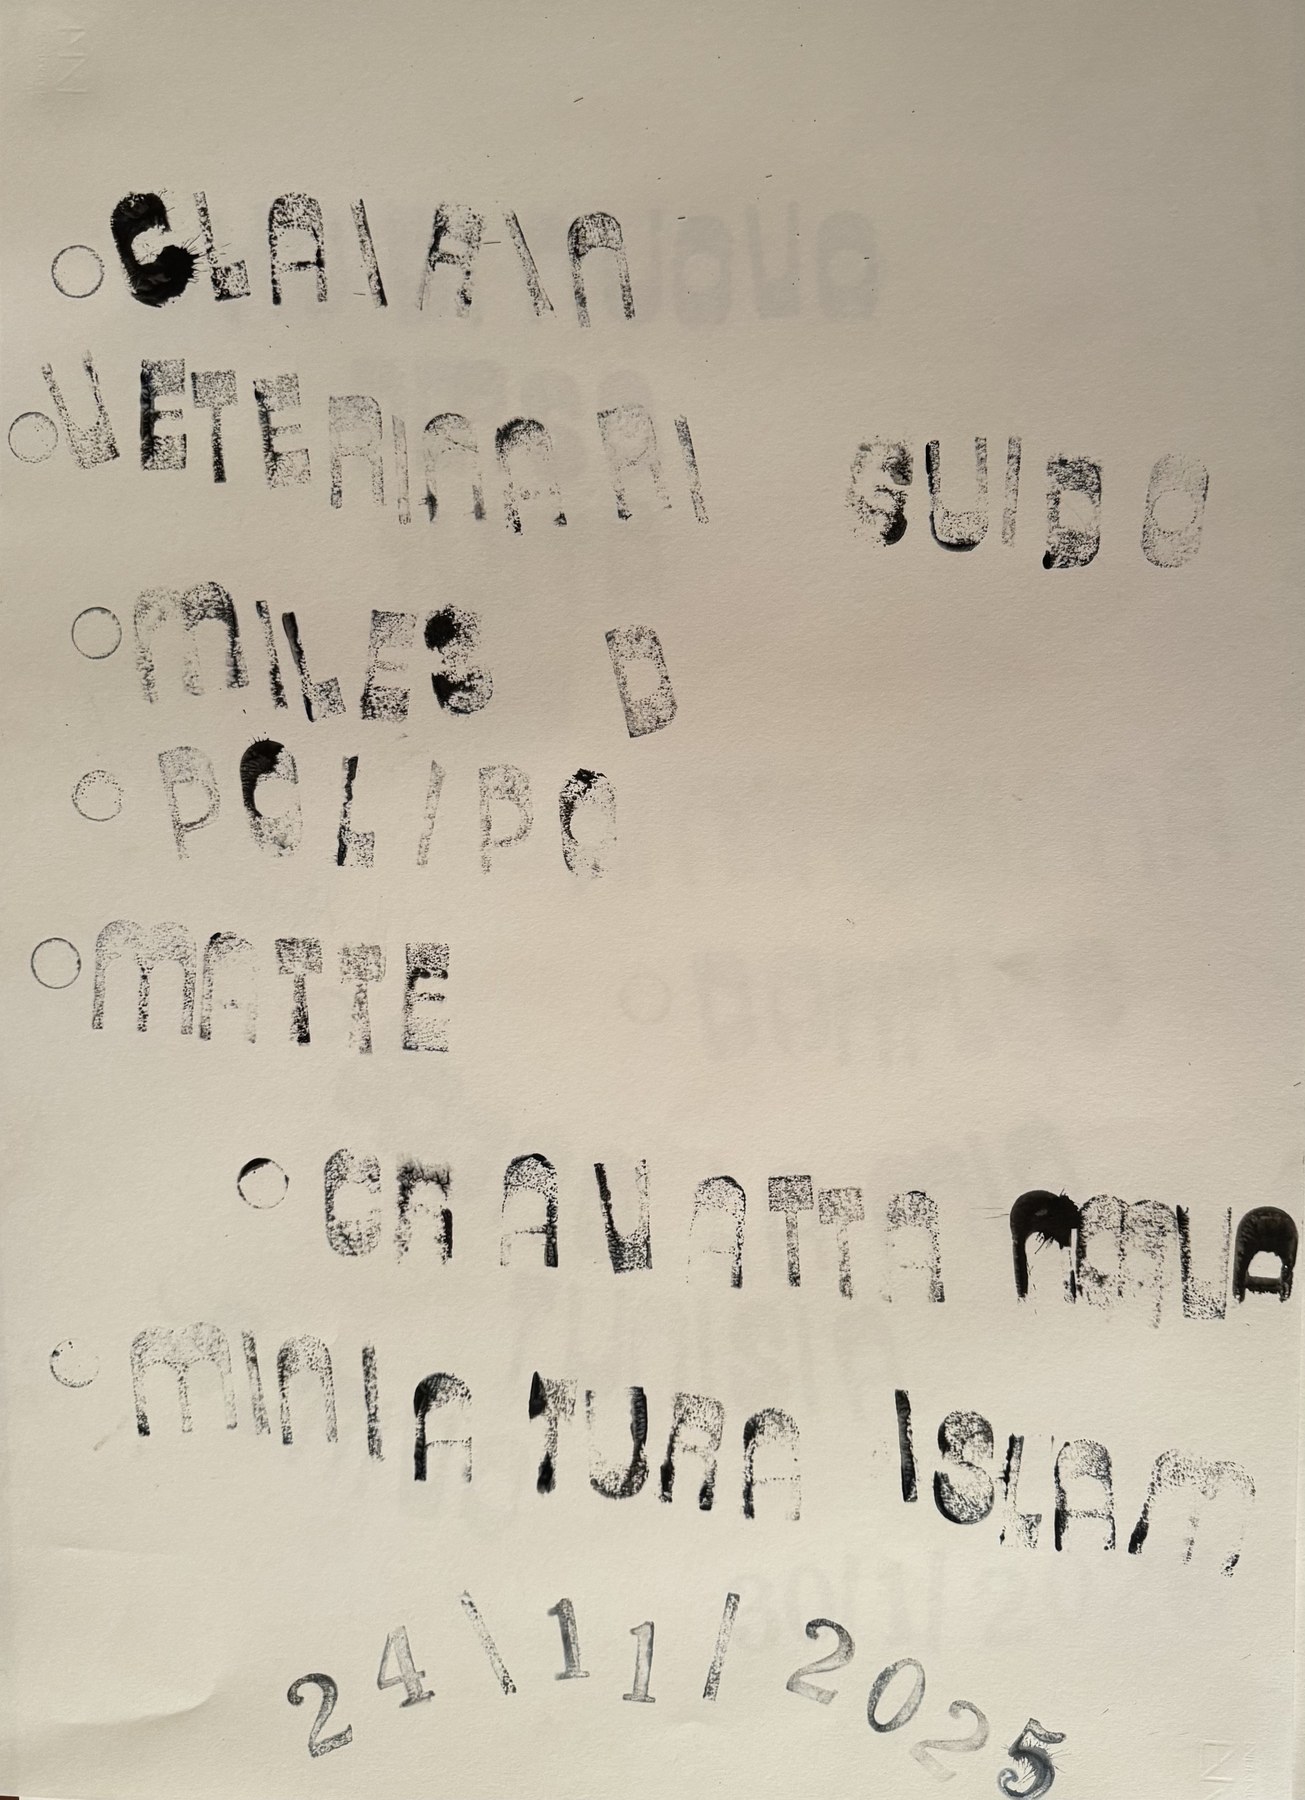 CLAIAIN
VETERINARI GUIDO
MILES D
POLIPO
MATTE
CRAVATTA
MINIATURA ISLAM
24\11/2025